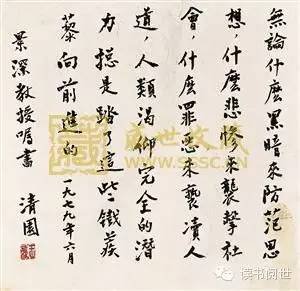 無論什麽黑暗來防范思
想，什麽悲慘來襲擊社
會，什麽罪惡來褻瀆人
道，人類渴仰完全的潛
力總是踏了這些鐵蒺
藜向前進的 一九七九年六月
景深教授嘱書 清園
盛世收藏
SSSC.CN
读书阅世